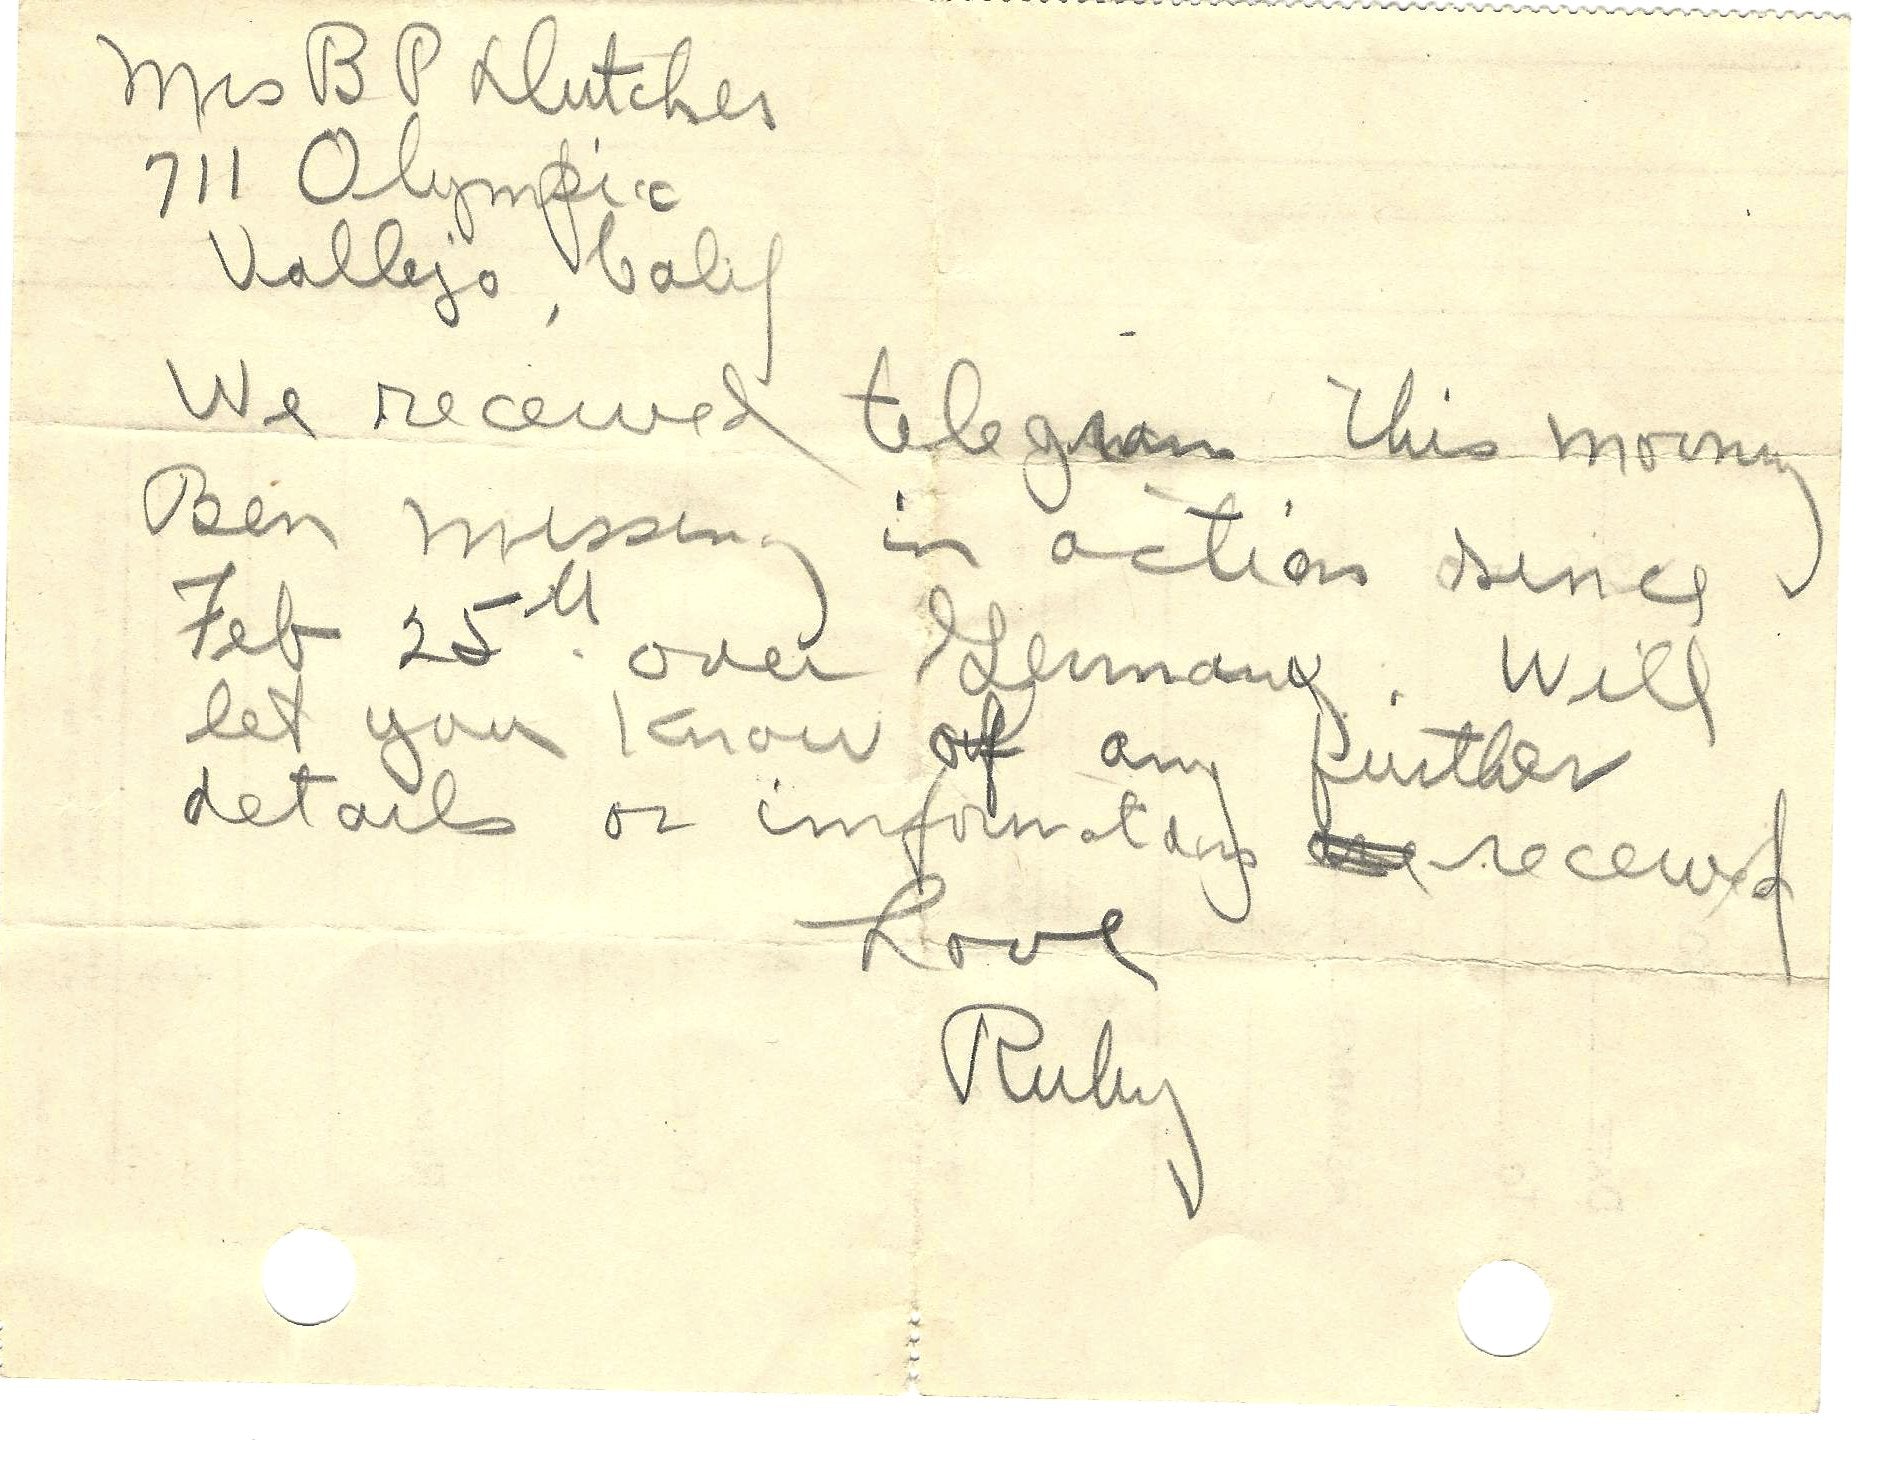 Mrs B P Dutcher
711 Olympic
Vallejo, Calif
We received telegram this morning
Ben missing in action since
Feb 25th over Germany. Will
let you know of any further
details or information received
Love
Ruby